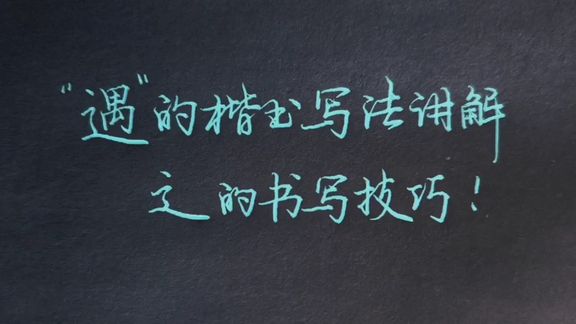 “遇”的楷书写法讲解
辶的书写技巧！